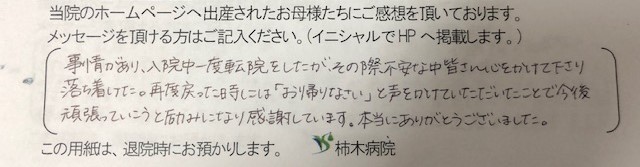 当院のホームページへ出産されたお母様たちにご感想を頂いております。
メッセージを頂ける方はご記入ください。（イニシャルでHPへ掲載します。）
事情があり、入院中一度転院をしたが、その際不安な中皆さん心をかけて下さり
落ち着けた。再度戻った時には「おり帰りなさい」と声をかけていただいたことで今後
頑張っていこうと励みになり感謝しています。本当にありがとうございました。
この用紙は、退院時にお預かりします。 柿木病院